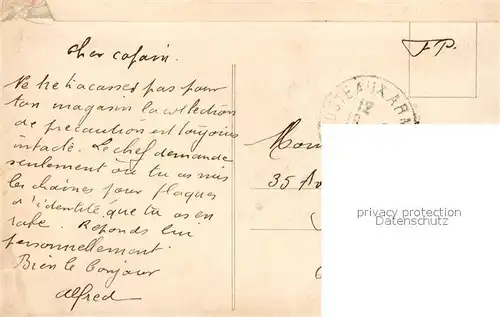 cher copain.
F.P.
Ne te tracasses pas pour
ton magasin la collection
de precaution est toujours
intacte. Le chef demande
seulement où tu as mis
les chaines pour plaques
d'identité que tu as en
rabe. Reponds lui
personnellement.
Bien le bonjour
Alfred
Mon
35 Av
12
privacy protection
Datenschutz